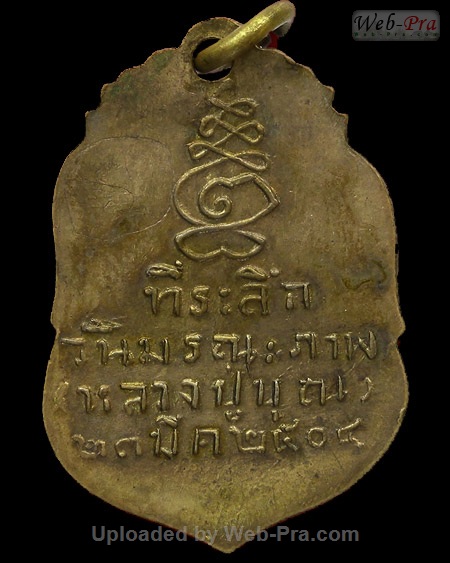 Web-Pra
Web-Pra.com
ที่ระลึก
วันมรณะภาพ
(หลวงปู่บุณ)
๒๑ มีค ๒๕๐๔
Uploaded by Web-Pra.com